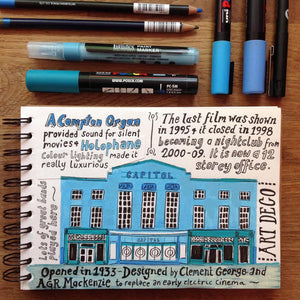 A Compton Organ
provided sound for silent
movies & Holophane
Colour lighting made it
really luxurious
The last film was shown
in 1995 & it closed in 1998
becoming a nightclub from
2000-09. It is now a 12
storey office.
Lots of great bands
played here ~
CAPITOL
CAPITOL
ART DECO!
Opened in 1933 - Designed by Clement George and
A&R Mackenzie to replace an early electric cinema ~
PAINT
MARKER
www.posca.com
PC-5M
POSCA